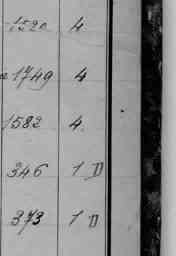 1520 4
1749 4
1582 4.
346 1 D
373 1 D